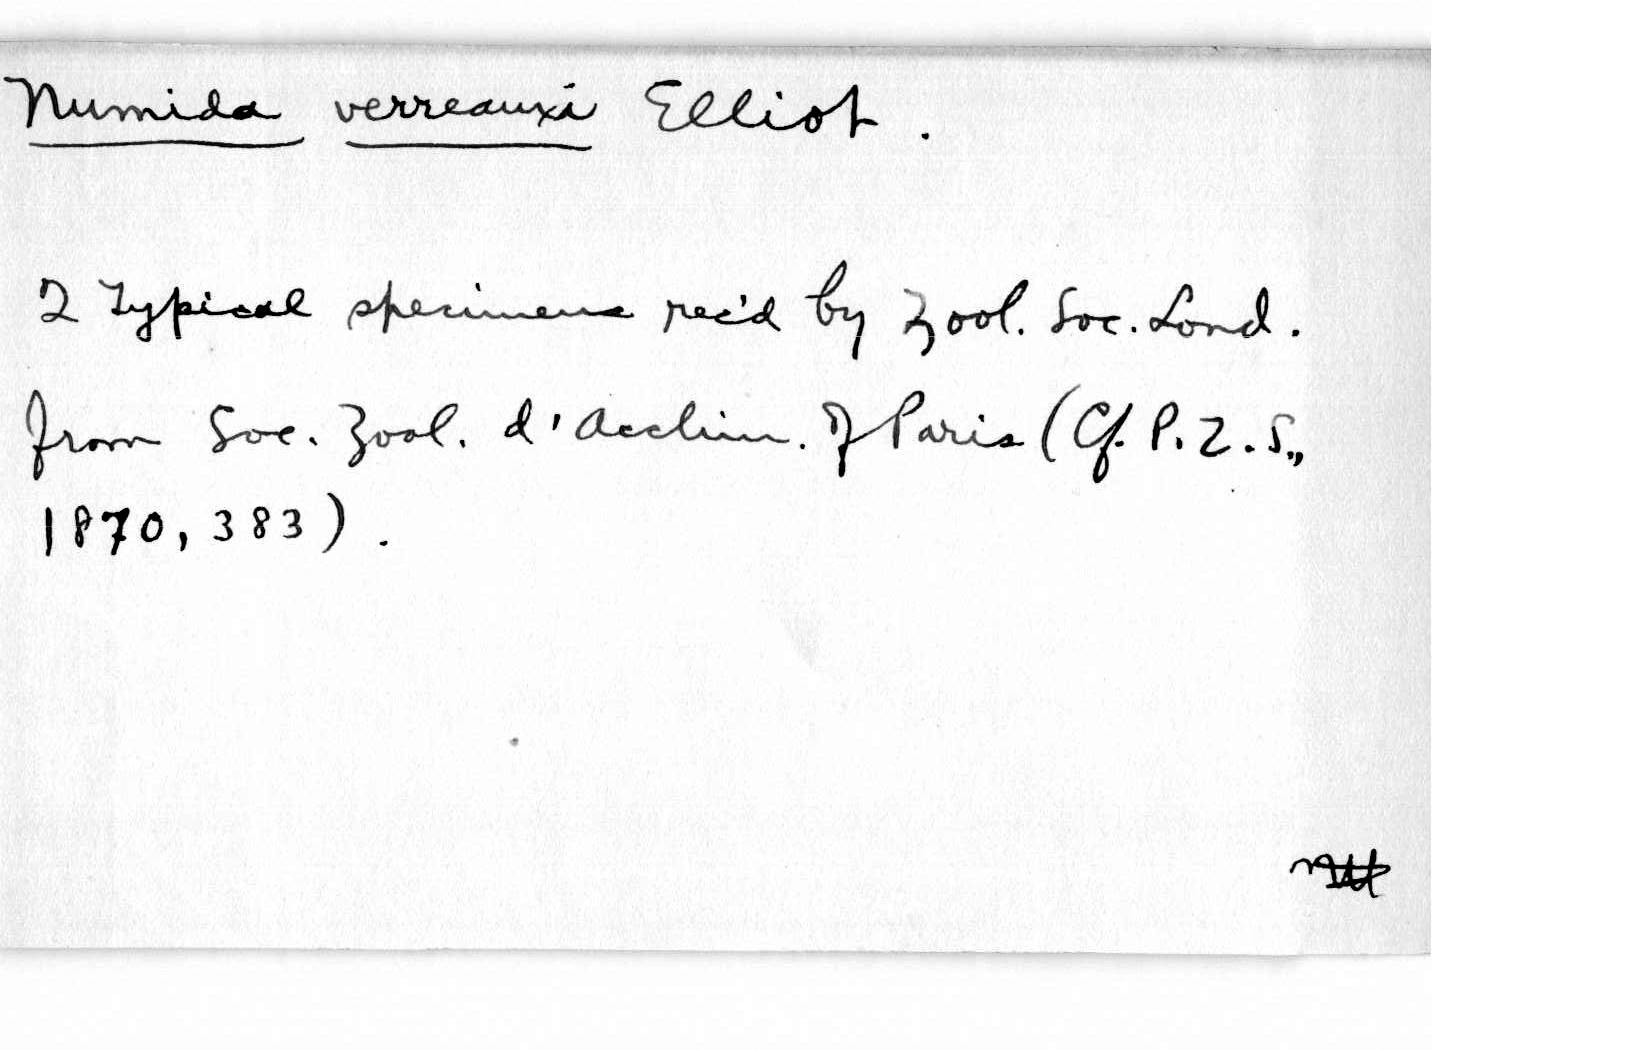 Numida verreauxi Elliot.
2 typical specimens rec'd by Zool. Soc. Lond.
from Soc. Zool. d'Acclim. of Paris (Cf. P.Z.S.,
1870, 383).